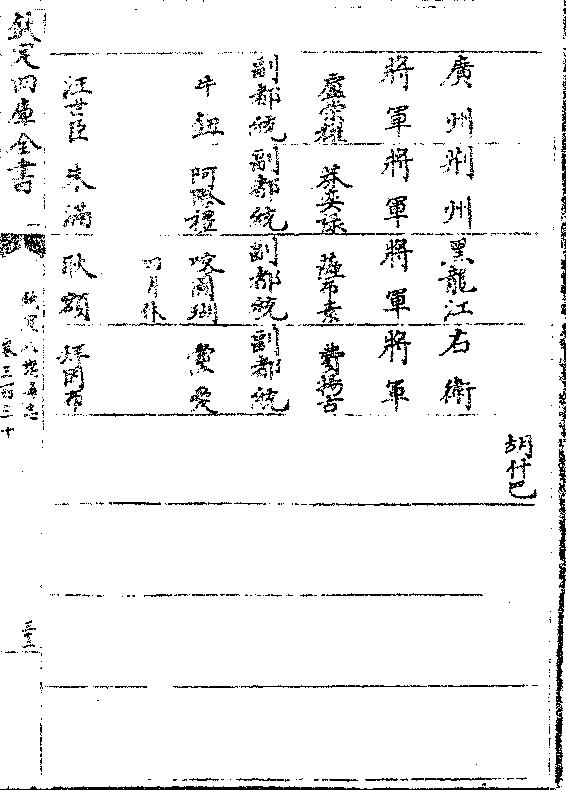 胡什巴
廣州 荆州 黑龍江 右衛
將軍 將軍 將軍 將軍
盧崇耀 莽奕禄 薩布素 費揚古
副都統 副都統 副都統 副都統
牛鈕 阿禮 爾瑚 愛
四月休
汪世臣 朱滿 耿額 岡布
欽定四庫全書
欽定八旗通志
卷三百三十